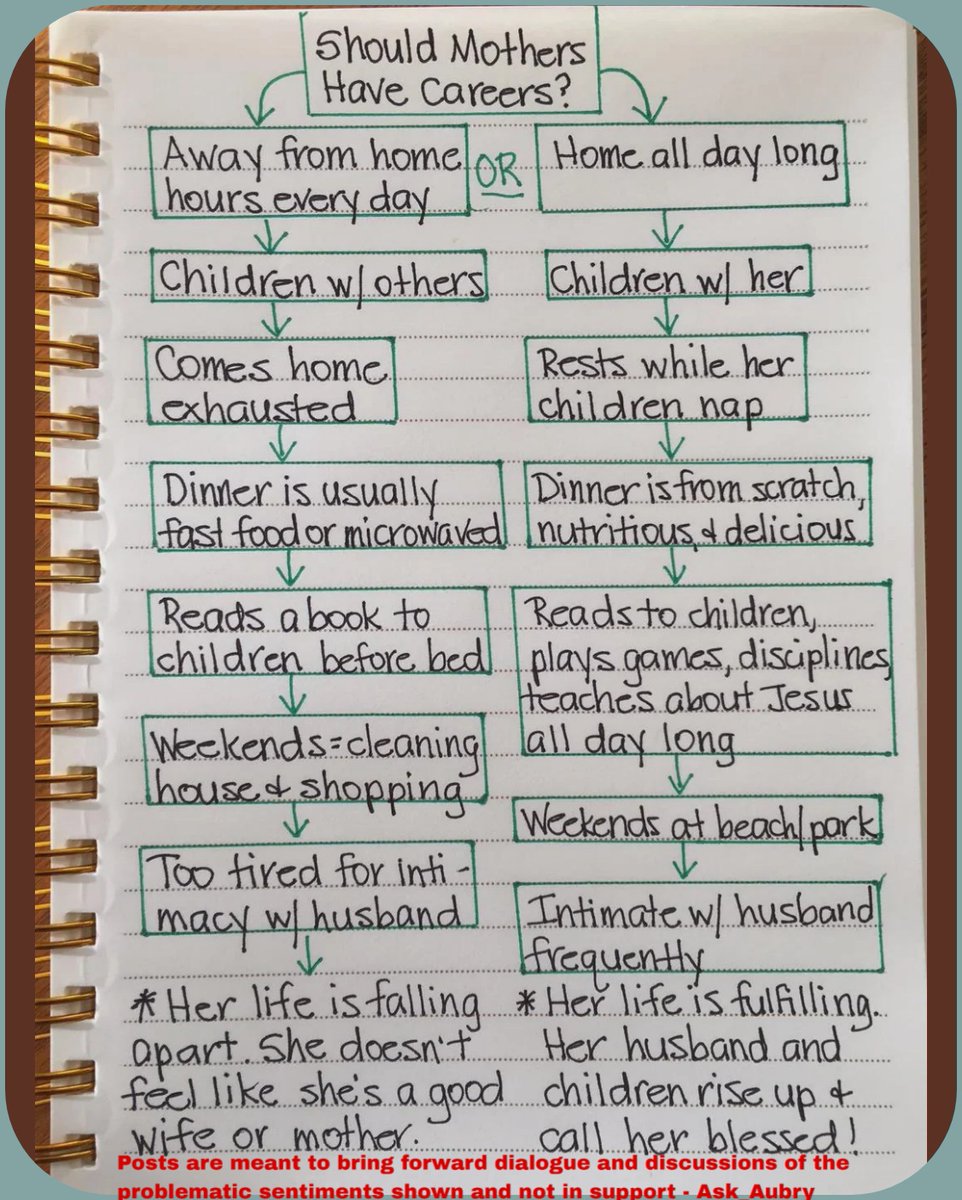 Should Mothers
Have Careers?
Away from home
hours every day
OR
Home all day long
Children w/ others
Children w/ her
Comes home
exhausted
Rests while her
children nap
Dinner is usually
fast food or microwaved
Dinner is from scratch,
nutritious, & delicious
Reads a book to
children before bed
Reads to children,
plays games, disciplines,
teaches about Jesus
all day long
Weekends=cleaning
house & shopping
Weekends at beach/park
Too tired for inti-
macy w/ husband
Intimate w/ husband
frequently
* Her life is falling
apart. She doesn't
feel like she's a good
wife or mother.
* Her life is fulfilling.
Her husband and
children rise up &
call her blessed!
Posts are meant to bring forward dialogue and discussions of the
problematic sentiments shown and not in support - Ask Aubry